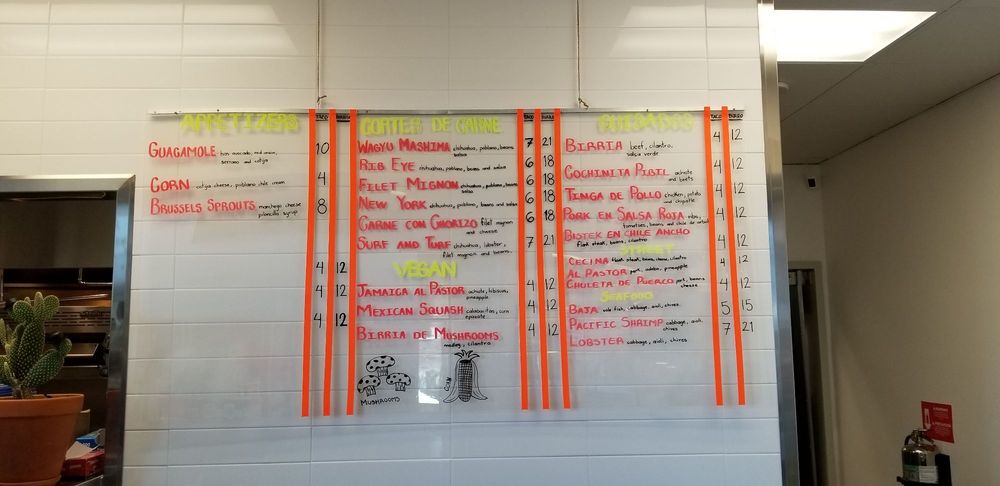 APPETIZERS
TACO
GUAGAMOLE
serrano and cotija
10
CORN cotija cheese, poblano chile cream 4
BRUSSELS SPROUTS manchego cheese 8
piloncillo syrup
4 12
4 12
4 12
CORTES DE CARNE
TACO
WAGYU MASHIMA chihuahua, poblano, beans 7 21
salsa
RIB EYE chihuahua, poblano, beans and salsa 6 18
FILET MIGNON chihuahua, poblano, beans 6 18
salsa
NEW YORK chihuahua, poblano, beans and salsa 6 18
CARNE CON CHORIZO filet mignon 6 18
and cheese
SURF AND TURF chihuahua, lobster, 7 21
filet mignon and beans
VEGAN
JAMAICA AL PASTOR achiote, hibiscus, 4 12
pineapple
MEXICAN SQUASH calabacitas, corn 4 12
epazote
BIRRIA DE MUSHROOMS 4 12
cilantro
MUSHROOMS
CORN
GUISADOS
TACO
BIRRIA beef, cilantro, 4 12
salsa verde
COCHINITA PIBIL achiote 4 12
and beets
TINGA DE POLLO chicken, potato 4 12
and chipotle
PORK EN SALSA ROJA 4 12
tomatoes, beans and chile de arbol
BISTEK EN CHILE ANCHO 4 12
flank steak, beans, cilantro
STREET
CECINA flank steak, beans, cilantro 4 12
AL PASTOR pork, adobo, pineapple
CHULETA DE PUERCO pork, beans 4 12
cheese
SEAFOOD
BAJA sole fish, cabbage, aioli, chives 5 15
PACIFIC SHRIMP cabbage, aioli 7 21
chives
LOBSTER cabbage, aioli, chives